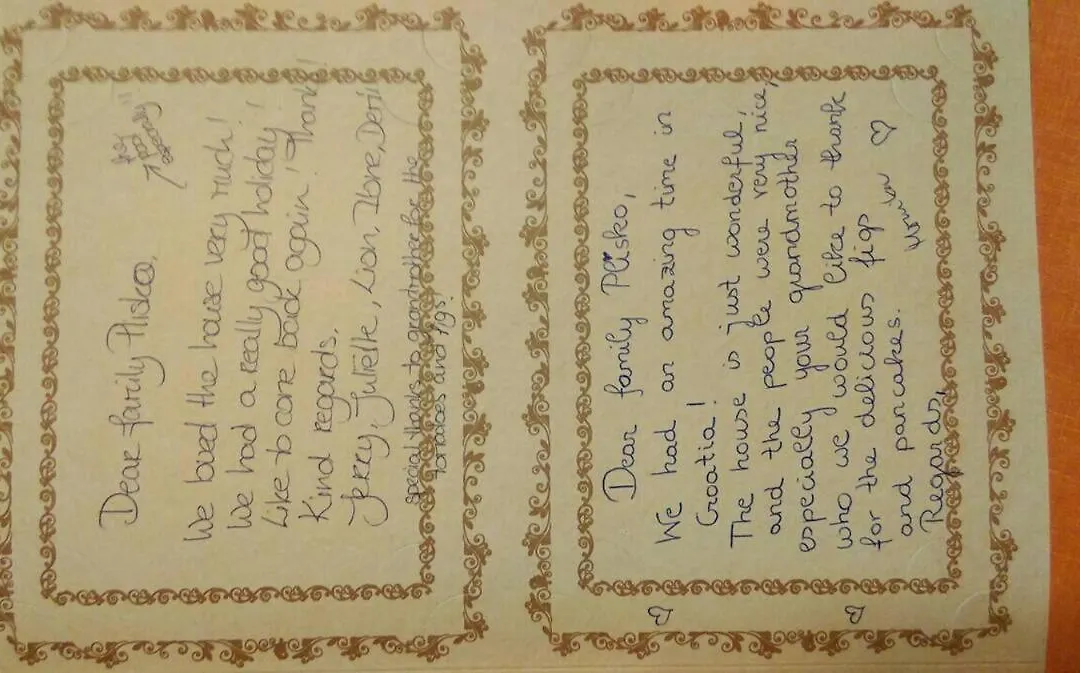 Dear family Pliskoo,
We loved the house very much!
We had a really good holiday!
Like to come back again! Thank!
Kind regards,
Jerry, Juliëtte, Lion,
special thanks to grandmother for the
tomatoes and figs!
Dear family Plisko,
We had an amazing time in
Croatia!
The house is just wonderful,
and the people were very nice,
especially your grandmother
who we would like to thank
for the delicious figs
and pancakes.
Regards,